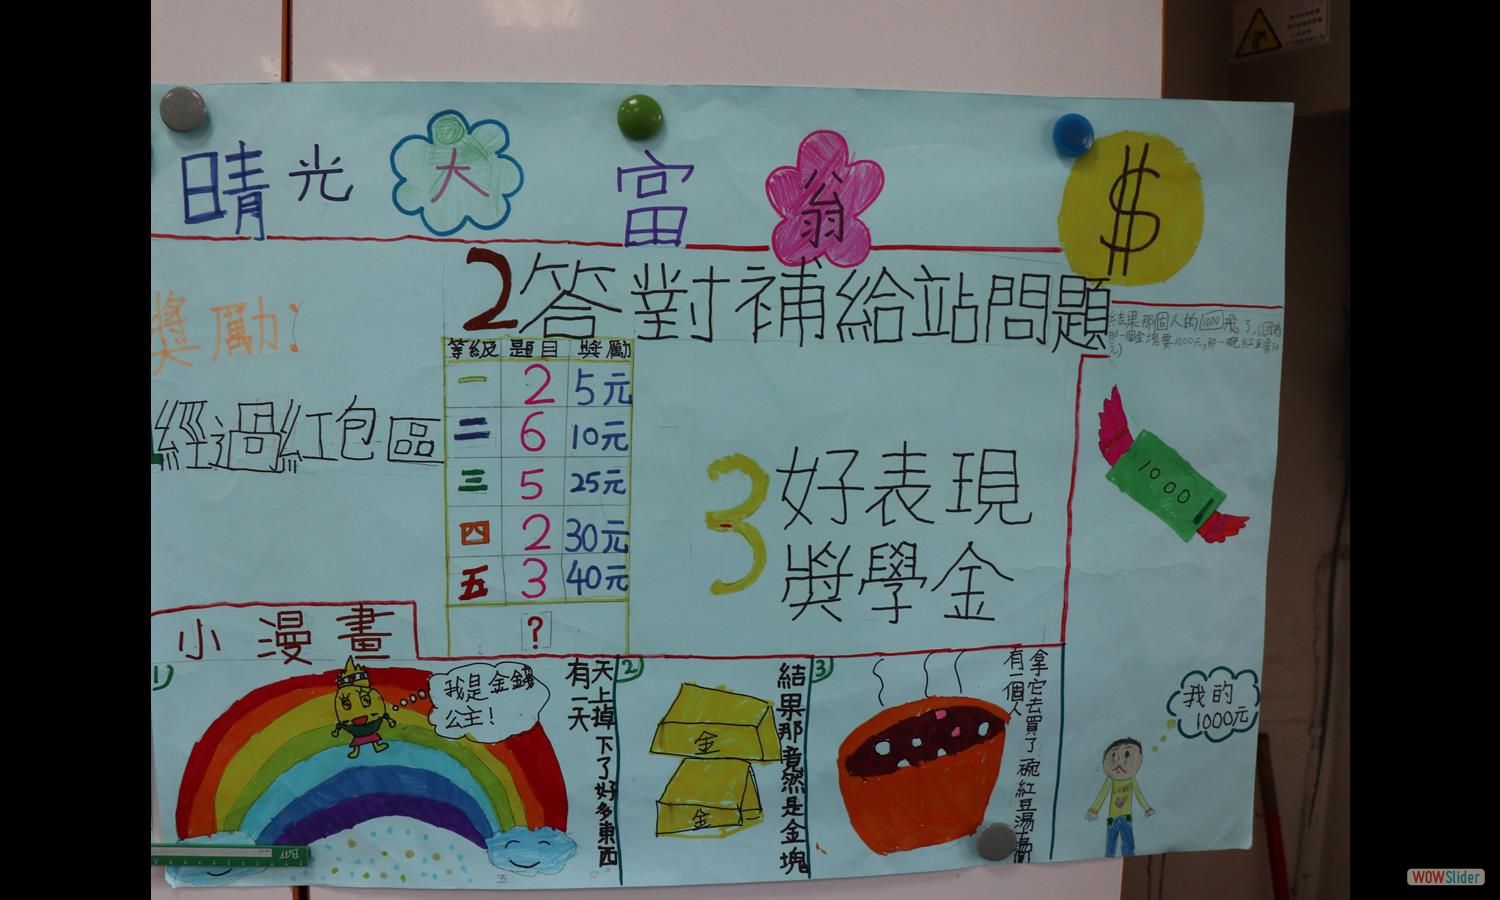 晴光大富翁
$
獎勵:
經過紅包區
2答對補給站問題
等級 題目 獎勵
一 2 5元
二 6 10元
三 5 25元
四 2 30元
五 3 40元
?
3好表現
獎學金
結果那個人的1000飛了。(因為
那一個金塊要1000元,那一碗紅豆湯30
元)
1000
小漫畫
1)
我是金錢
公主!
有一天
天上掉下了好多東西
2)
金
金
結果那竟然是金塊
3)
有一個人
拿它去買了一碗紅豆湯
我的
1000元
LOVE
WOWSlider